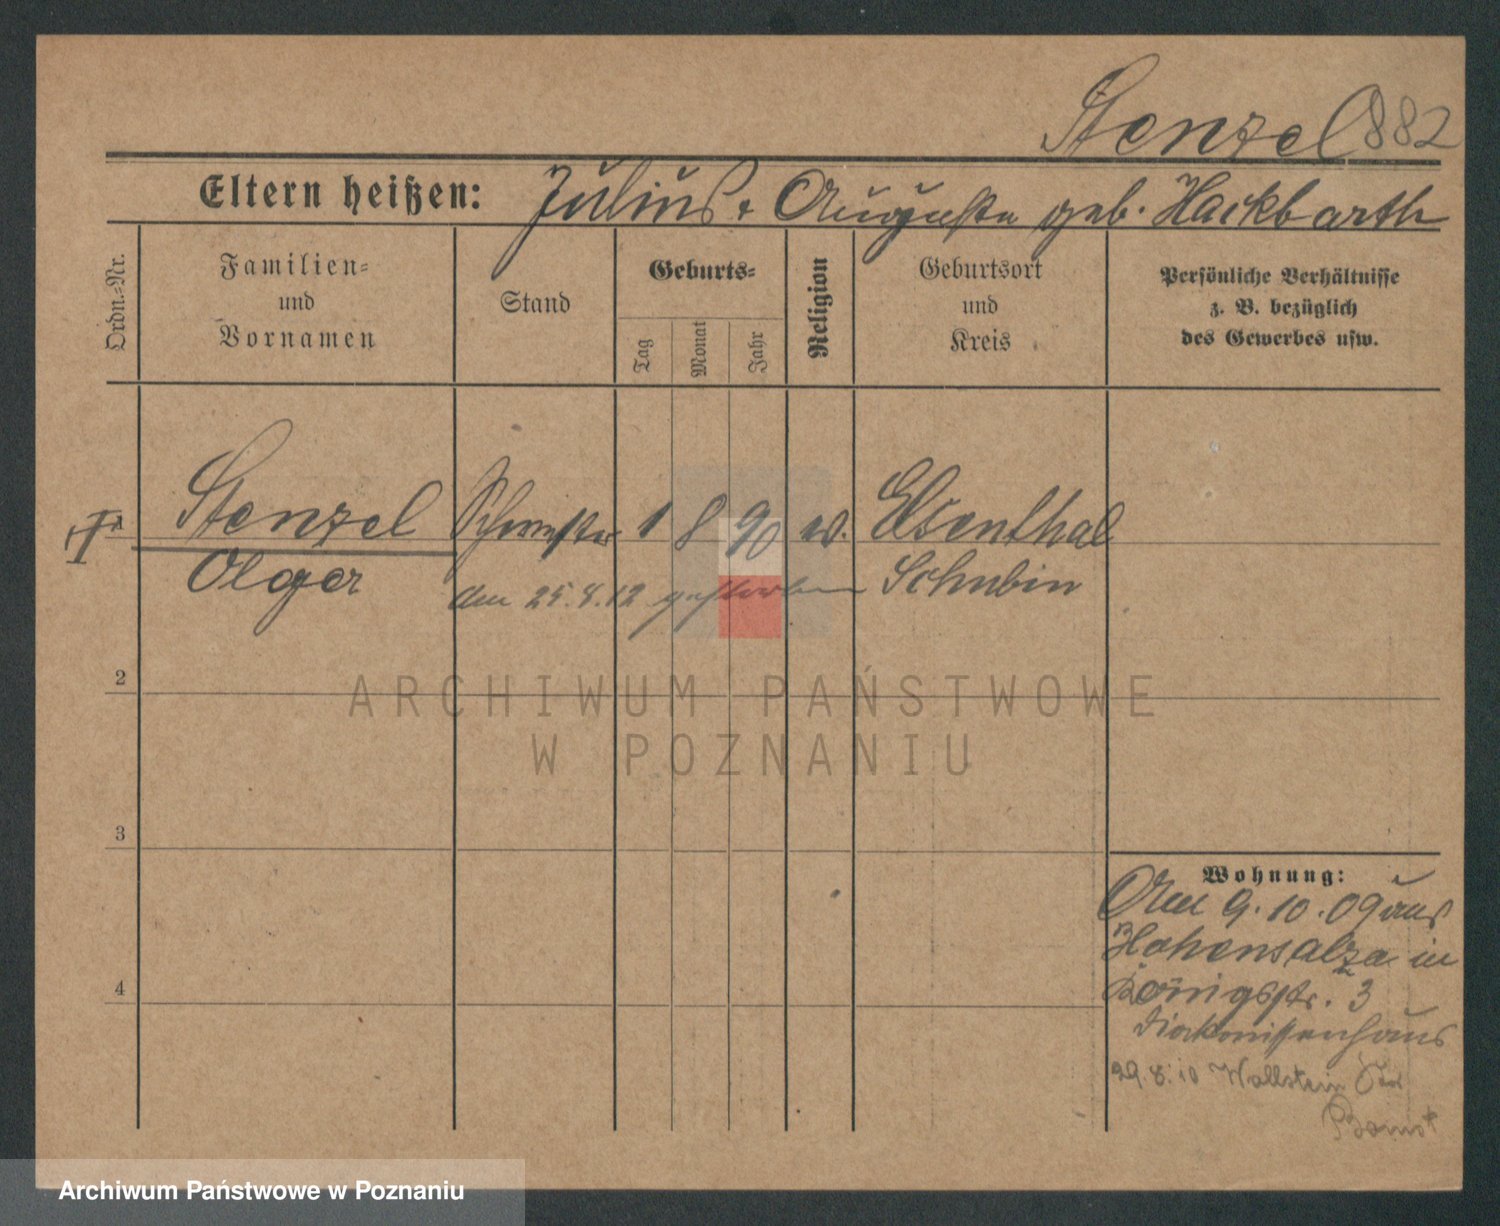 Stenzel 882
Eltern heißen: Julius & Auguste geb. Hackbarth
Ordn.-Nr.
Familien-
und
Vornamen
Stand
Geburts-
Tag
Monat
Jahr
Religion
Geburtsort
und
Kreis
Persönliche Verhältnisse
z. B. bezüglich
des Gewerbes usw.
1 Stenzel Schwester 1 8 90 ev. Elsenthal
Olga Schubin
den 25.8.12 gestorben
2
3
4
Wohnung:
Am 9.10.09 aus
Hohensalza in
Königsstr. 3
Diakonissenhaus
29.8.10 Wollstein
Bomst
ARCHIWUM PAŃSTWOWE
W POZNANIU
Archiwum Państwowe w Poznaniu